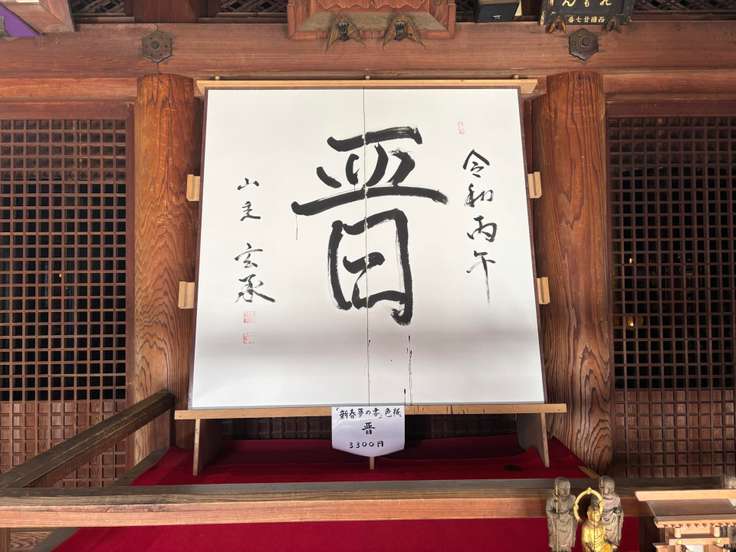 令和丙午
晋
山主 玄承
「新春夢の書」色紙
晋
3300円